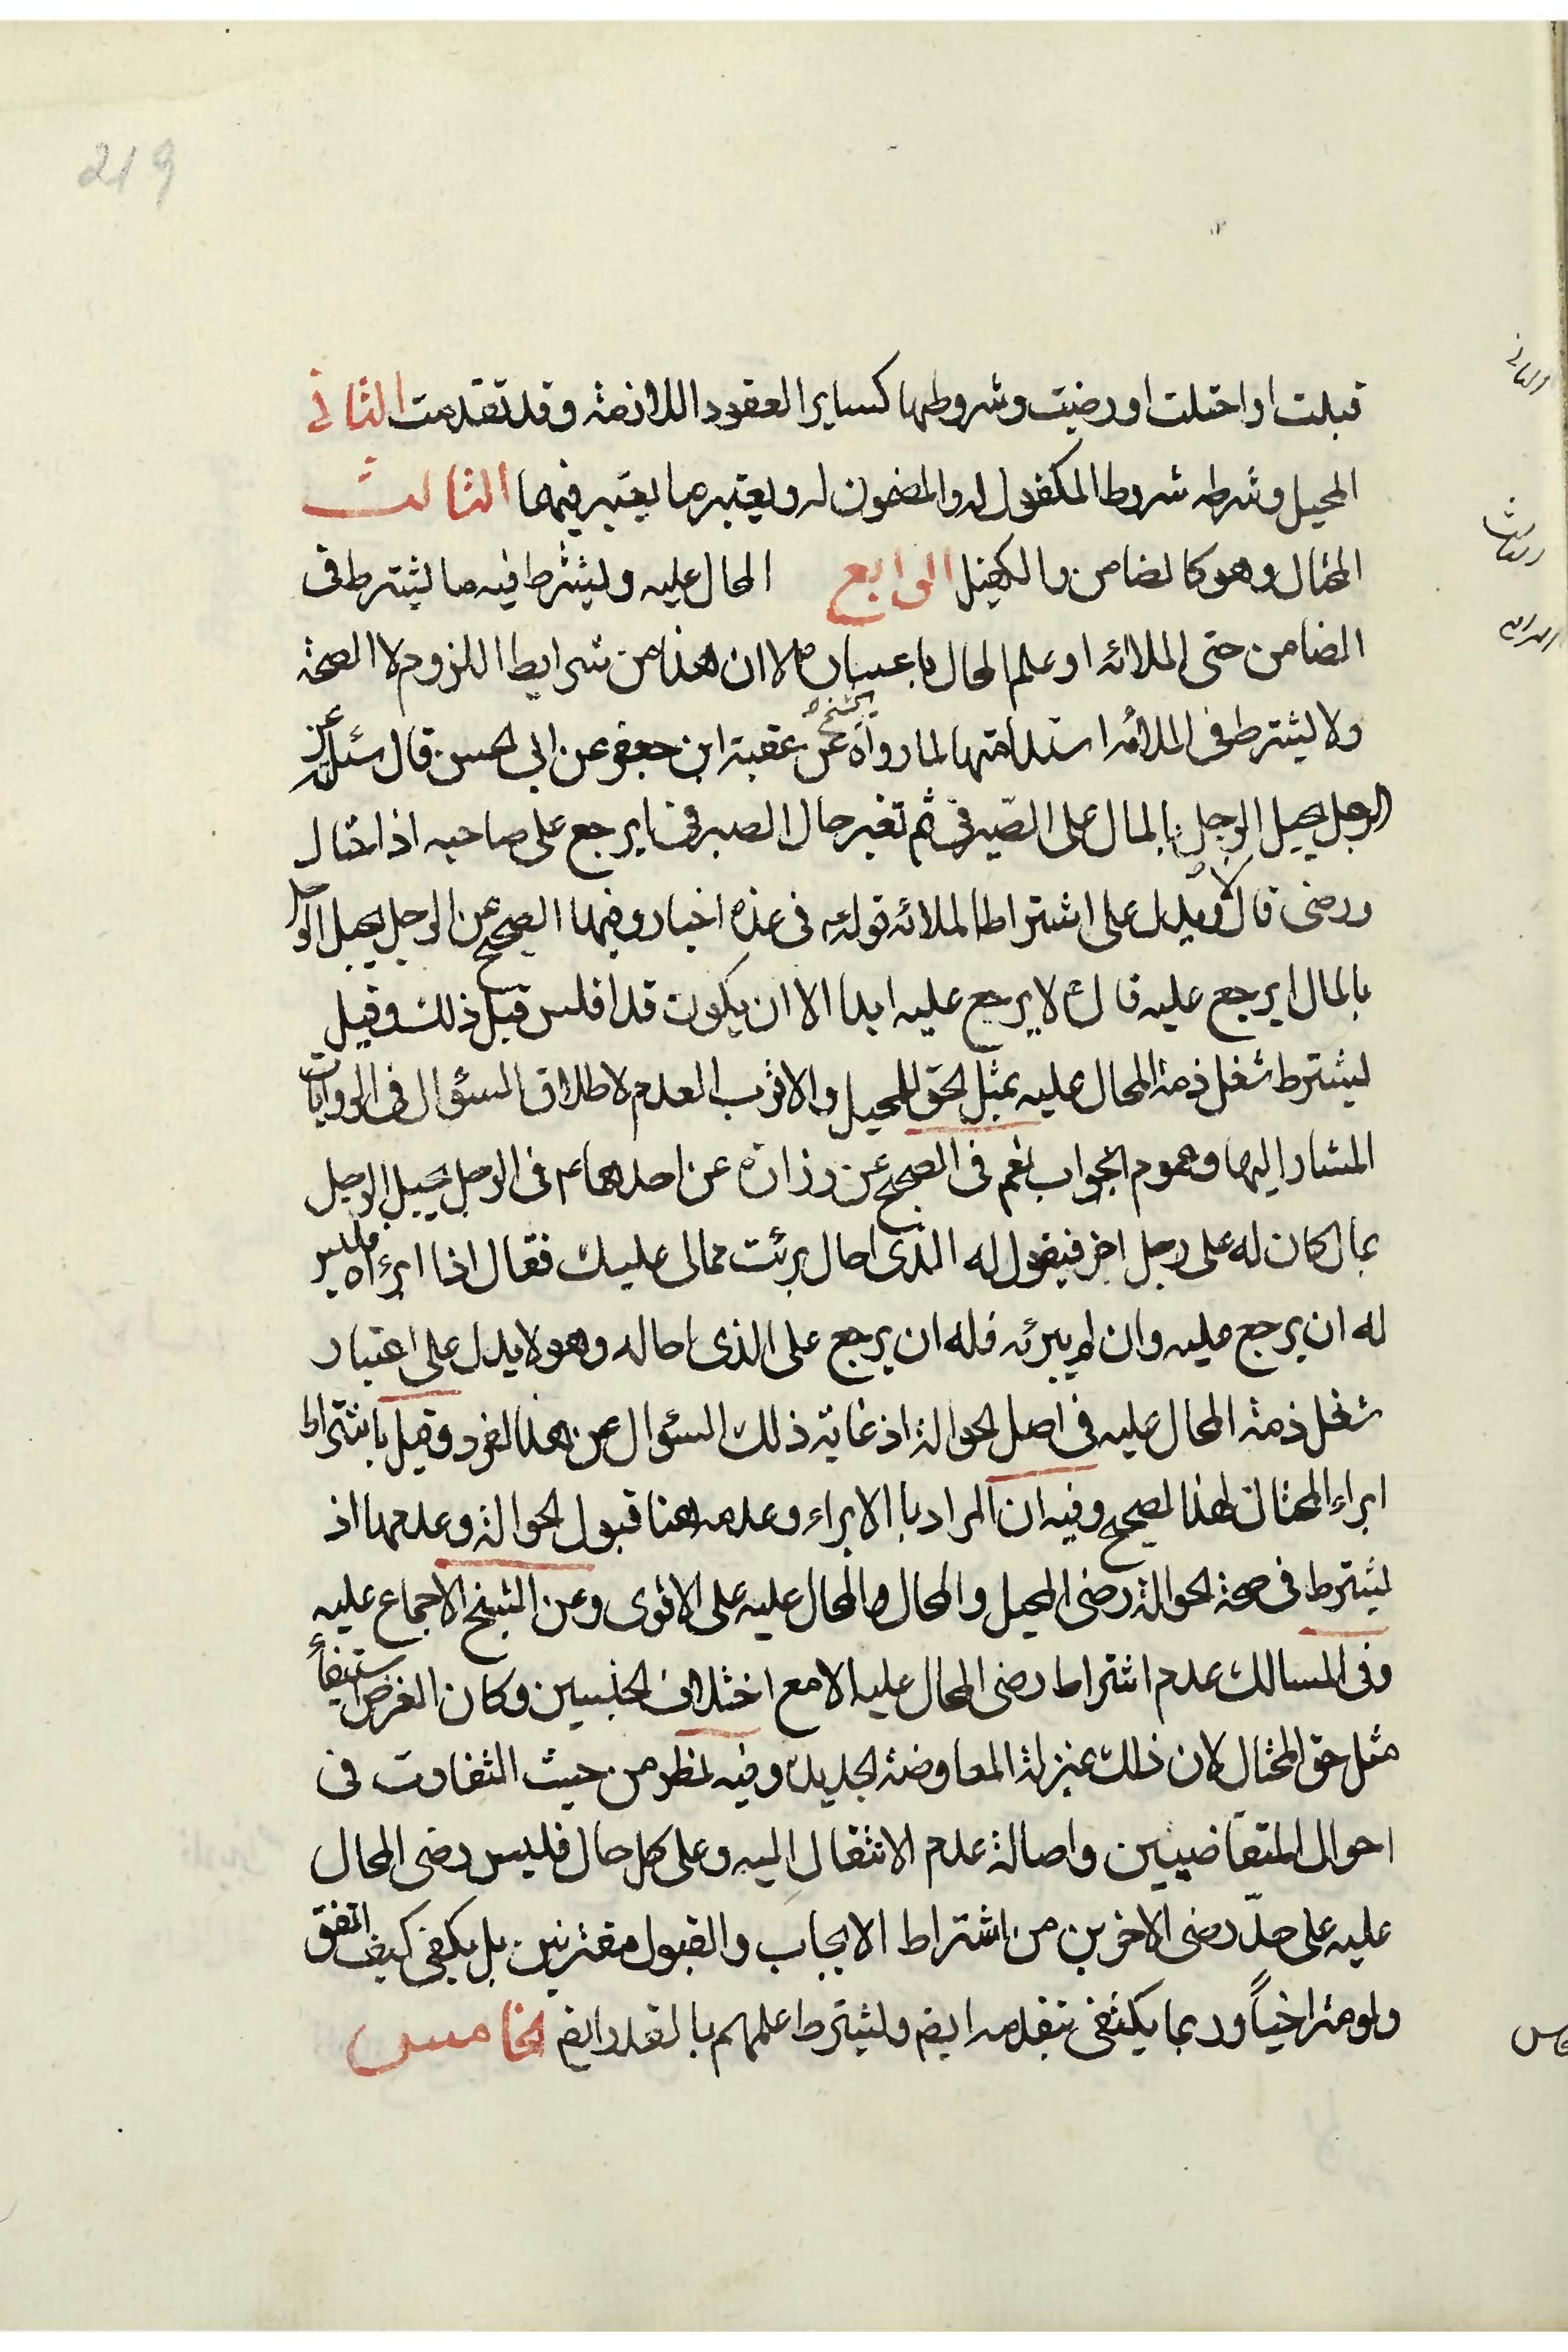 219
قبلت او احتلت او رضيت وشروطها كساير العقود اللازمة وقد تقدمت الثانى
المحيل وشرطه شروط المكفول له والمضمون له ويعتبر ما يعتبر فيهما الثالث
المحتال وهو كالضامن والكفيل الرابع المحال عليه ويشترط فيه ما يشترط فى
الضامن حتى الملائه او علم المحال باعساره الا ان هذا من شرايط اللزوم لا الصحة
ولا يشترط فى الملائه استدامتها لما رواه الشيخ عن عقبة ابن جعفر عن ابى الحسن قال سئلته عن
الرجل يحيل الرجل بالمال على الصّيرفى ثم تغير حال الصيرفى ايرجع على صاحبه اذا احتال
ورضى قال لا ويدل على اشتراط الملائه قوله فى عدة اخبار وفيها الصحيح عن الرجل يحيل الرجل
بالمال ايرجع عليه قال لا يرجع عليه ابدا الا ان يكون قد افلس قبل ذلك وقيل
يشترط شغل ذمة المحال عليه بمثل الحق للمحيل والاقرب العدم لاطلاق السؤال فى الروايات
المشار اليها وعموم الجواب نعم فى الصحيح عن زرارة عن احدهما ع فى الرجل يحيل الرجل
بمال كان له على رجل اخر فيقول له الذى احال برئت ممالى عليك فقال اذا ابرءه فليس
له ان يرجع عليه وان لم يبرئه فله ان يرجع على الذى احاله وهو لا يدل على اعتبار
شغل ذمة المحال عليه فى اصل الحوالة اذ غاية ذلك السؤال عن هذا الفرد وقيل باشتراط
ابراء المحتال لهذا الصحيح وفيه ان المراد بالابراء وعدمه هنا قبول الحوالة وعدمها اذ
يشترط فى صحة الحوالة رضى المحيل والمحال والمحال عليه على الاقوى وعن الشيخ الاجماع عليه
وفى المسالك عدم اشتراط رضى المحال عليه الا مع اختلاف الجنسين وكان الغرض استيفاء
مثل حق المحتال لان ذلك بمنزلة المعاوضة الجديدة وفيه نظر من حيث التفاوت فى
احوال المتقاضيين واصالة عدم الانتقال اليه وعلى كل حال فليس رضى المحال
عليه على حدّ رضى الاخرين من اشتراط الايجاب والقبول مقترنين بل يكفى كيف اتفق
ولو متراخياً وربما يكتفى بتقدمه ايض ويشترط علمهم بالقدر ايض الخامس
الثانى
الثالث
الرابع